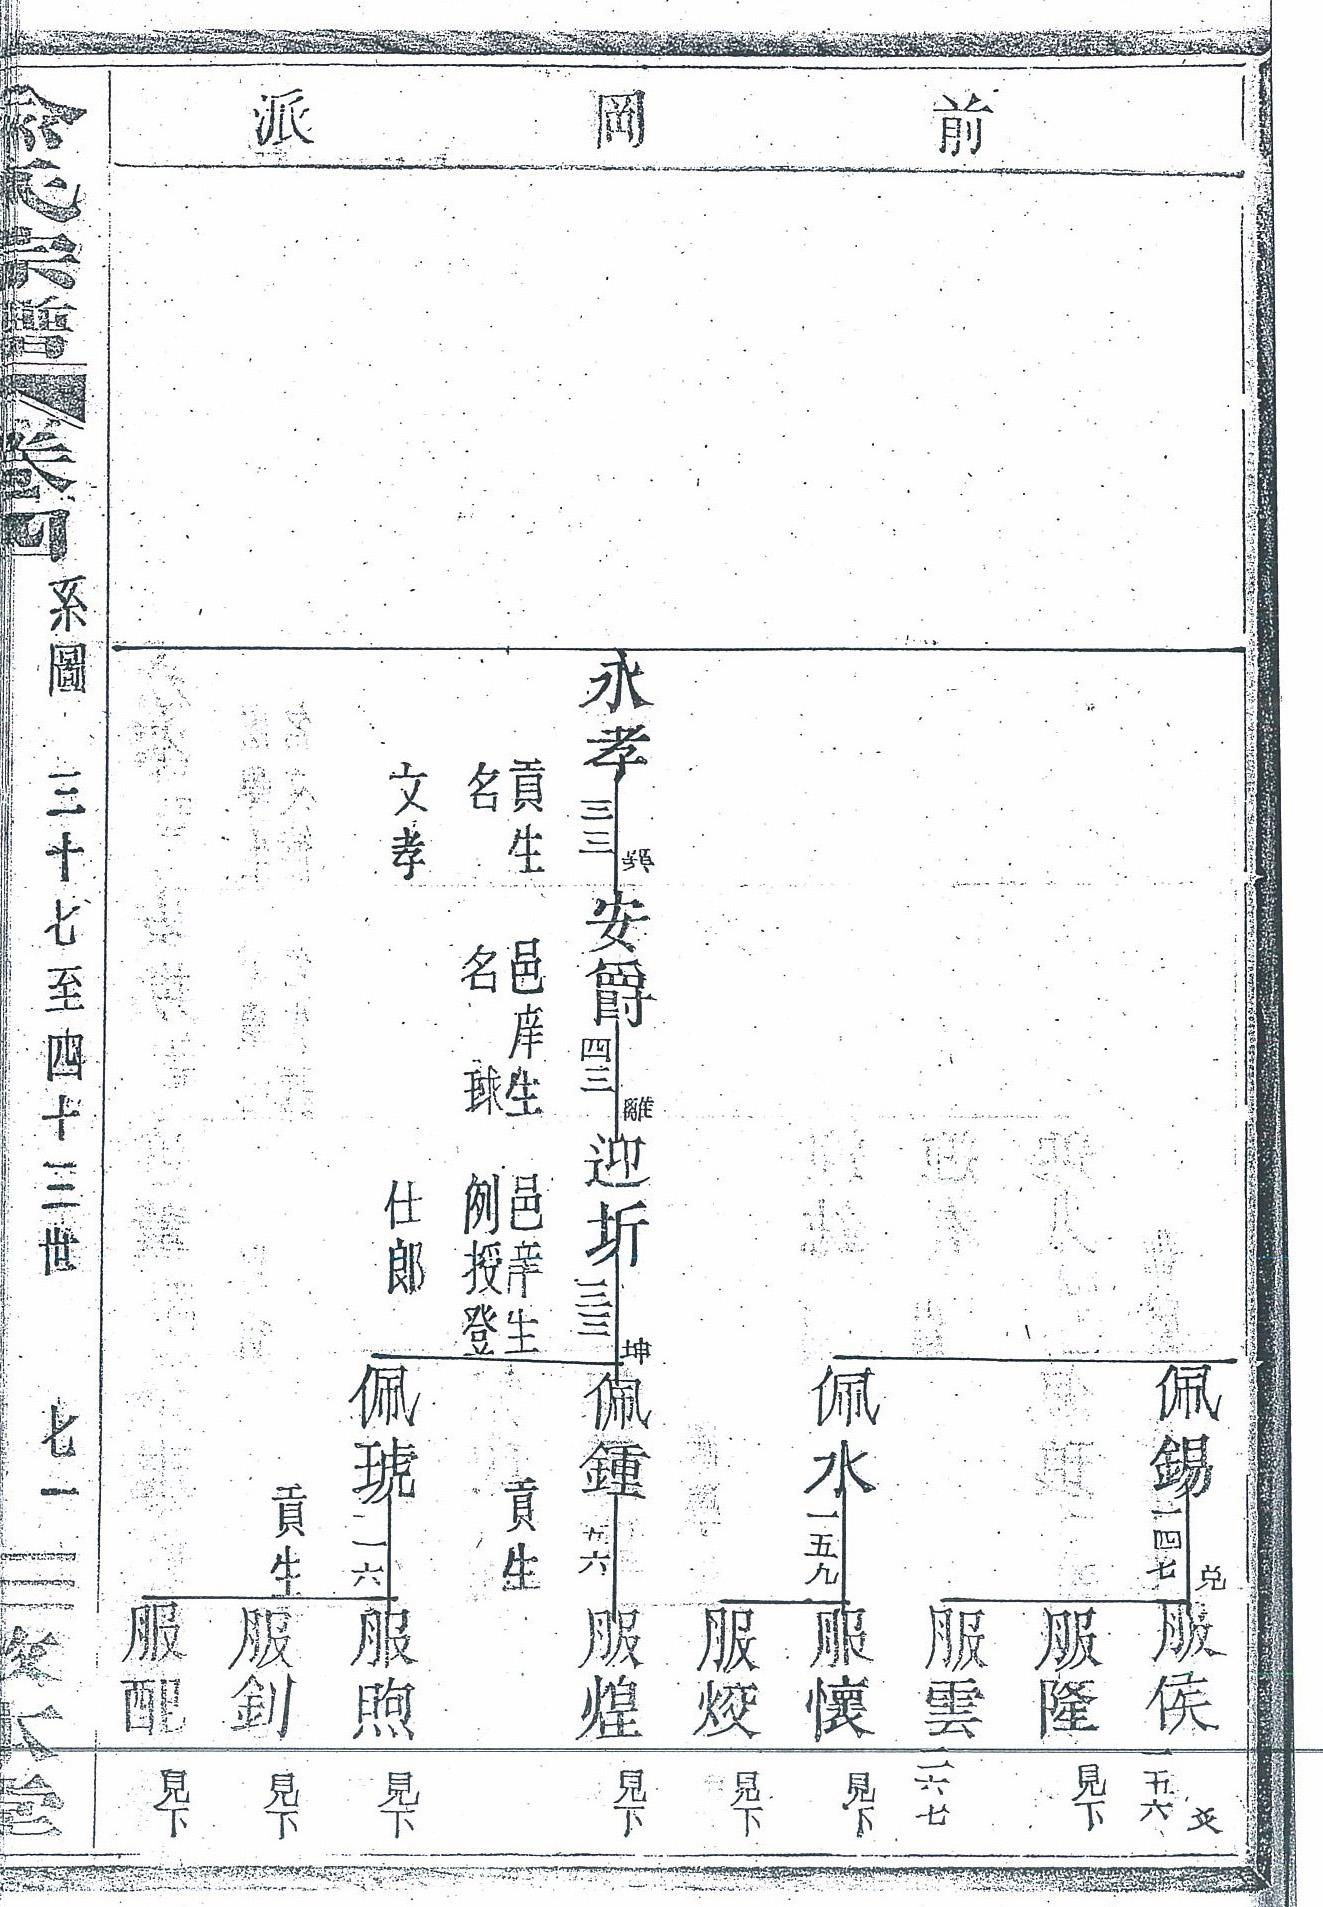 前岡派
永孝
三三
貢生
名
文孝
安爵
四三
離
邑庠生
名球
迎圻
三三
坤
邑庠生
例授登
仕郎
佩錫
一四七
兌
佩水
一五九
佩鍾
六
貢生
佩琥
二一六
貢生
服侯
一五六
服隆
見下
服雲
二六七
服懷
見下
服烄
見下
服煌
見下
服煦
見下
服釗
見下
服配
見下
氏宗譜
卷四
系圖
三十七至四十三世
七一